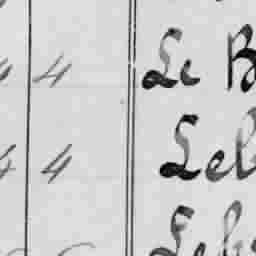 4 4 Le B
4 4 Leb
Leb